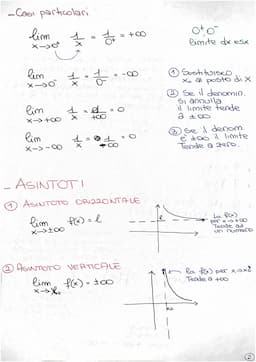 - Casi particolari
lim x→0⁺ 1/x = 1/0⁺ = +∞
0⁺ 0⁻
limite dx e sx
lim x→0⁻ 1/x = 1/0⁻ = -∞
① Sostituisco
x₀ al posto di x
② Se il denomin.
si annulla
il limite tende
a ±∞
lim x→+∞ 1/x = 1/+∞ = 0
③ Se il denom
è ±∞ il limite
tende a zero.
lim x→-∞ 1/x = 1/-∞ = 0
- ASINTOTI
① ASINTOTO ORIZZONTALE
lim x→±∞ f(x) = l
l
La f(x)
per x→+∞
tende ad
un numero
② ASINTOTO VERTICALE
lim x→x₀ f(x) = ±∞
La f(x) per x→x₀⁺
tende a +∞
x₀
②